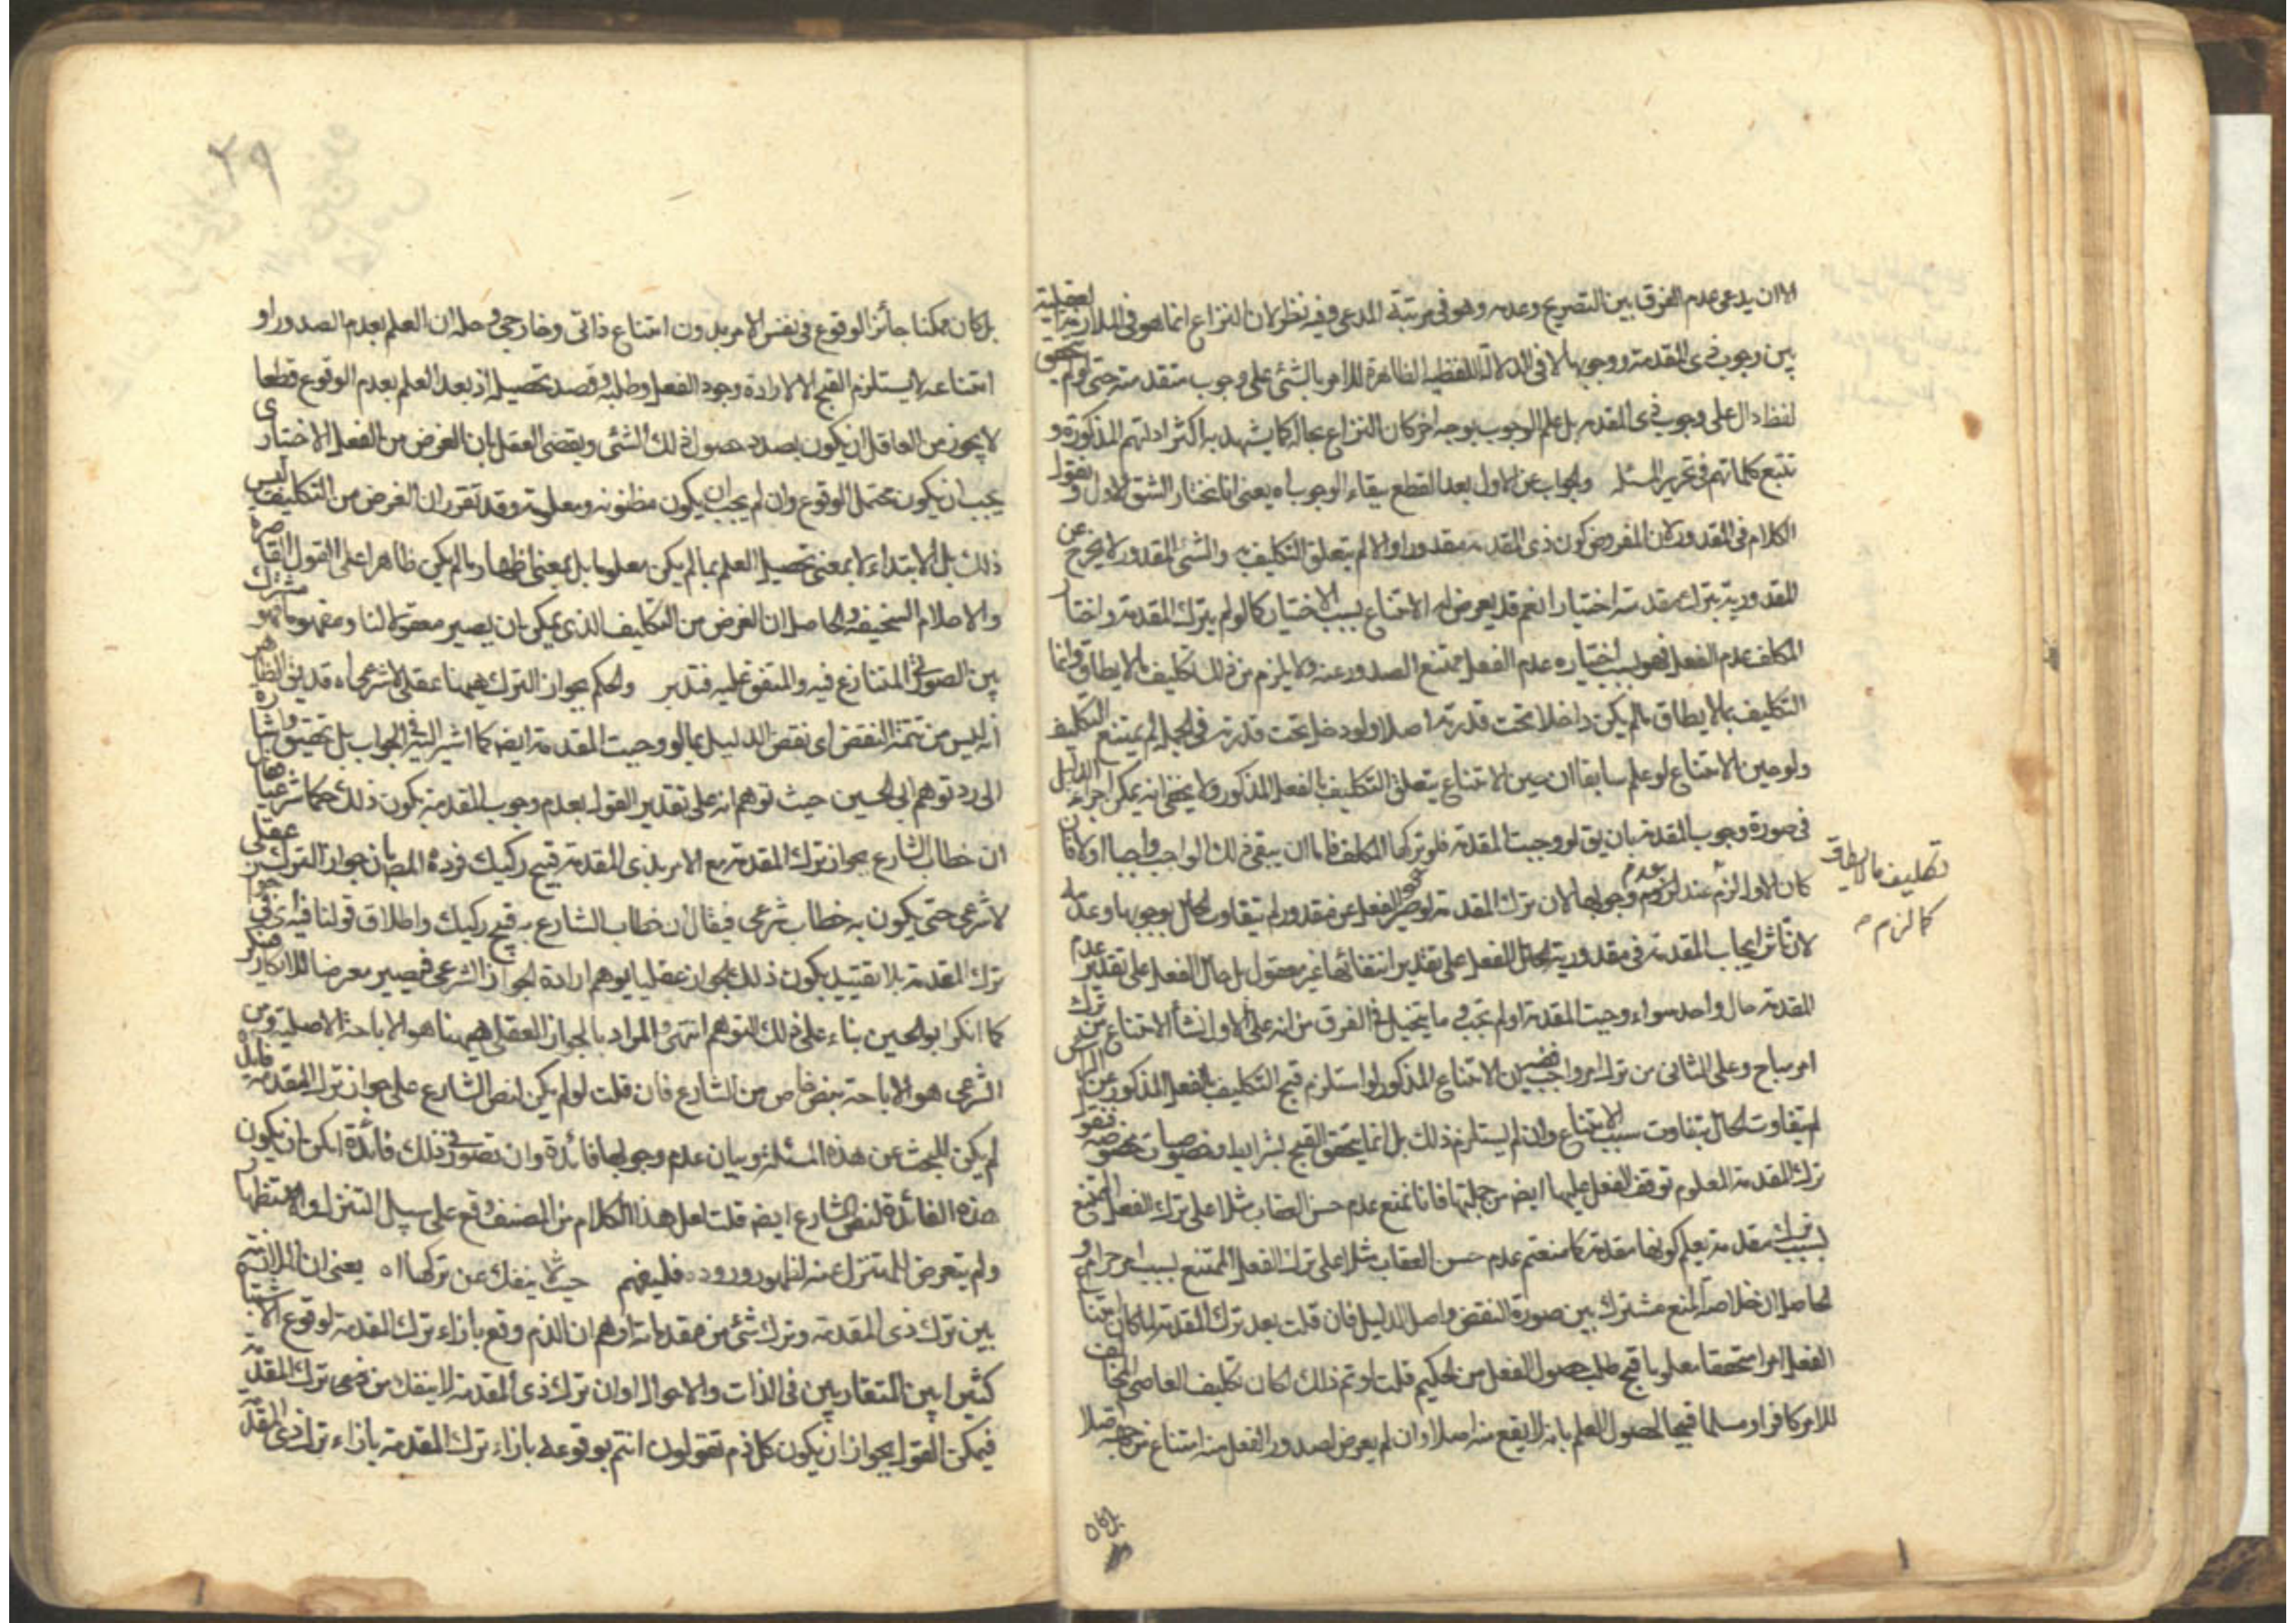 الا ان يدعى عدم الفرق بين التصريح وعدمه وهو فى مرتبة المدعى وفيه نظر لان النزاع انما هو فى الملازمة العقلية
بين وجوب ذى المقدمة ووجوبها لا فى الدلالة اللفظية الظاهرة للامر بالشئ على وجوب مقدمته حتى لو لم يتحقق
لفظ دال على وجوب ذى المقدمه بل علم الوجوب بوجه اخر كان النزاع بحاله كما يشهد به اكثر ادلتهم المذكورة و
تتبع كلماتهم فى تحرير المسئله والجواب عن الاول بعد القطع ببقاء الوجوب اه يعنى انا نختار الشق الاول و نقول
الكلام فى المقدور لان المفروض كون ذى المقدمة مقدورا والا لم يتعلق التكليف به والشئ المقدور لا يخرج عن
المقدورية بترك مقدمته اختيارا نعم قد يعرض له الامتناع بسبب الاختيار كما لو لم يترك المقدمة واختار
المكلف عدم الفعل فهو بسبب اختياره عدم الفعل ممتنع الصدور عنه ولا يلزم من ذلك تكليف بما لا يطاق وانما
التكليف بما لا يطاق ما لم يكن داخلا تحت قدرته اصلا ولو دخل تحت قدرته فى الجملة لم يمتنع التكليف
ولو حين الامتناع لو علم سابقا ان حين الامتناع يتعلق التكليف بالفعل المذكور ولا يخفى انه يمكن اجراء الدليل
فى صورة وجوب المقدمة بان يق لو وجبت المقدمة فلو تركها المكلف فاما ان يبقى ذلك الواجب واجبا او لا فان
كان الاول لزم عند لزوم عدم وجوبها لان ترك المقدمة لو صير الفعل غير مقدور لم يتفاوت الحال بوجوبها وعدمه
تكليف ما لا يطاق
كما لزم
لان تاثير ايجاب المقدمة فى مقدورية الفعل على تقدير انتفائها غير معقول بل حال الفعل على تقدير عدم
المقدمة حال واحد سواء وجبت المقدمة او لم تجب و ما يتخيل فى الفرق من انه على الاول نشأ الامتناع من ترك
امر مباح وعلى الثانى من ترك امر واجب الامتناع المذكور لو استلزم قبح التكليف بالفعل المذكور
لم يتفاوت الحال بتفاوت سبب الامتناع وان لم يستلزم ذلك بل انما يتحقق القبح بشرايط وخصوصيات مخصوصة
ترك المقدمة المعلوم توقف الفعل عليها ايض من جملتها فانا نمنع عدم حسن العقاب مثلا على ترك الفعل الممتنع
بسبب ترك مقدمة يعلم كونها مقدمة كما منعتم عدم حسن العقاب مثلا على ترك الفعل الممتنع بسبب امر حرام و
الحاصل ان خلاصة المنع مشترك بين صورة النقض واصل الدليل فان قلت بعد ترك المقدمة لما كان امتناع
الفعل امرا متحققا معلوما قبح طلب حصول الفعل من الحكيم قلت لو تم ذلك لكان تكليف العاصى المخالف
للامر كافرا او مسلما قبيحا لحصول العلم بانه لا يقع منه اصلا وان لم يعرض لصدور الفعل منه امتناع من جهة اصلا
بل كان
٢٩
بل كان ممكنا جائز الوقوع فى نفس الامر بدون امتناع ذاتى وخارجى وحله ان العلم بعدم الصدور او
امتناعه لا يستلزم القبح الا لارادة وجود الفعل وطلبه و قصد تحصيله اذ بعد العلم بعدم الوقوع قطعا
لا يجوز من العاقل ان يكون بصدد حصول ذلك الشئ ويقضى العقل بان الغرض من الفعل الاختيارى
يجب ان يكون محتمل الوقوع وان لم يجب ان يكون مظنونه ومعلومه و قد تقرر ان الغرض من التكليف ليس
ذلك بل الابتلاء لا بمعنى تحصيل العلم بما لم يكن معلوما بل بمعنى اظهار ما لم يكن ظاهرا على القول القاصرة
والاحلام السخيفة والحاصل ان الغرض من التكليف الذى يمكن ان يصير معقولا لنا ومفهوما هو مشترك
بين الصورتين المتنازع فيه والمتفق عليه فتدبر والحكم بجواز الترك هيهنا عقلى لا شرعى اه قد يق الظاهر
انه ليس من تتمة النقض اى نقض الدليل بما لو وجبت المقدمة ايض كما اشير اليه فى الجواب بل تحقيق واشارة
الى رد توهم ابى الحسين حيث توهم انه على تقدير القول بعدم وجوب المقدمة يكون ذلك حكما شرعيا فقال
ان خطاب الشارع بجواز ترك المقدمة مع الامر بذى المقدمة قبيح ركيك فرده المص بان جواز الترك عقلى
لا شرعى حتى يكون به خطاب شرعى فيقال ان خطاب الشارع به قبيح ركيك واطلاق قولنا فيه اى فى جواز
ترك المقدمة بلا تقييد بكون ذلك الجواز عقليا يوهم ارادة الجواز الشرعى فيصير معرضا للانكار
كما انكر ابو الحسين بناء على ذلك التوهم انتهى والمراد بالجواز العقلى هيهنا هو الاباحة الاصلية ومن
الشرعى هو الاباحة بنص خاص من الشارع فان قلت لو لم يكن لنص الشارع على جواز ترك المقدمة فايدة
لم يكن للبحث عن هذه المسئلة وبيان عدم وجوبها فائدة وان تصور فى ذلك فائدة امكن ان يكون
هذه الفائدة لنص الشارع ايض قلت لعل هذا الكلام من المصنف وقع على سبيل التنزل والاستظهار
ولم يتعرض للمتنزل عنه لظهور وروده فليفهم حيث لا ينفك عن تركها اه يعنى ان الملازمة
بين ترك ذى المقدمة وترك شئ من مقدماته اوهم ان الذم وقع بازاء ترك المقدمة لوقوع الاشتباه
كثيرا بين المتقاربين فى الذات والاحوال او ان ترك ذى المقدمة لا ينفك من ترك المقدمة
فيمكن القول بجواز ان يكون كل ذم تقولون انتم بوقوعه بازاء ترك المقدمة بازاء ترك ذى المقدمة